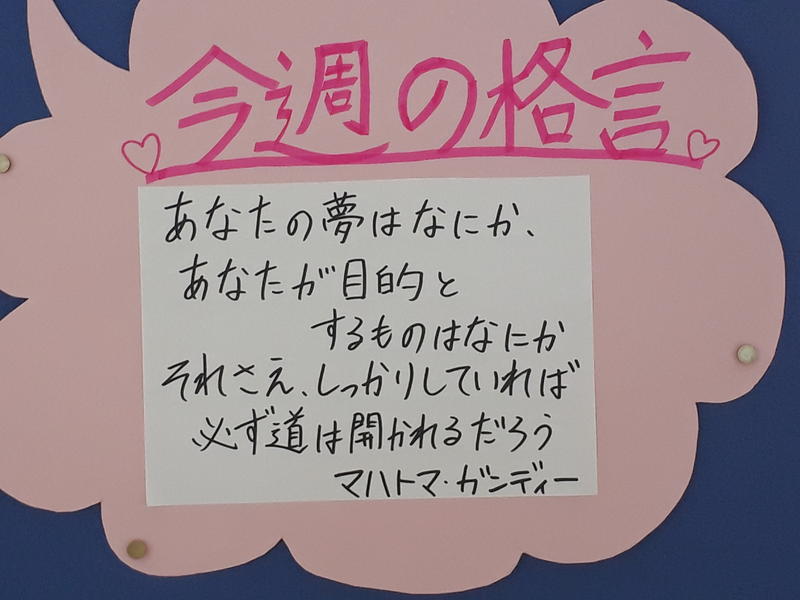 今週の格言
あなたの夢はなにか、
あなたが目的と
するものはなにか
それさえ、しっかりしていれば
必ず道は開かれるだろう
マハトマ・ガンディー